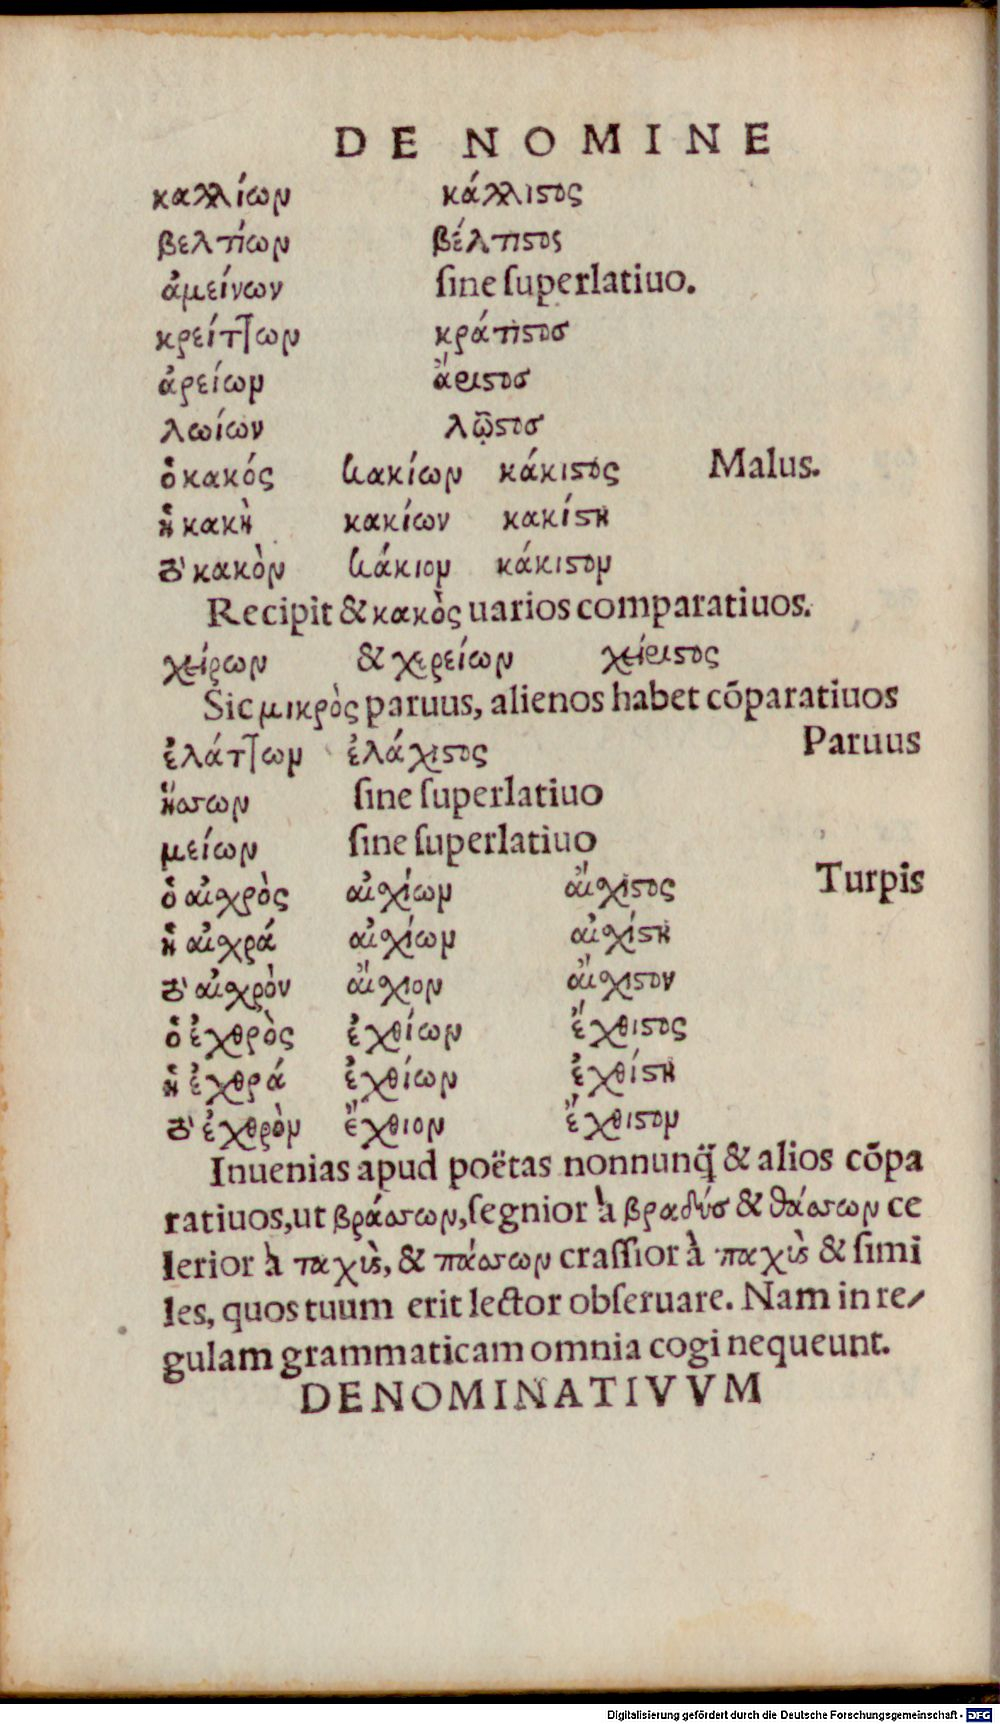 DE NOMINE
καλλίων κάλλιϛος
βελτίων βέλτιϛος
ἀμείνων ſine ſuperlatiuo.
κρείτ]ων κράτιϛοσ
ἀρείων ἄριϛοσ
λωίων λῶϛοσ
ὁ κακός κακίων κάκιϛος Malus.
ἡ κακὴ κακίων κακίϛη
τὸ κακὸν κάκιον κάκιϛον
Recipit & κακὸς uarios comparatiuos.
χείρων & χερείων χείριϛος
Sic μικρὸς paruus, alienos habet cōparatiuos
ἐλάτ]ων ἐλάχιϛος Paruus
ἥσσων ſine ſuperlatiuo
μείων ſine ſuperlatiuo
ὁ αἰσχρὸς αἰσχίων αἴσχιϛος Turpis
ἡ αἰσχρά αἰσχίων αἰσχίϛη
τὸ αἰσχρὸν αἴσχιον αἴσχιϛον
ὁ ἐχθρὸς ἐχθίων ἔχθιϛος
ἡ ἐχθρά ἐχθίων ἐχθίϛη
τὸ ἐχθρὸν ἔχθιον ἔχθιϛον
Inuenias apud poëtas nonnunq̃ & alios cōpa
ratiuos,ut βράσσων,ſegnior à βραδύσ & θάσσων ce
lerior à ταχὺς, & πάσσων craſſior à παχὺς & ſimi
les, quos tuum erit lector obſeruare. Nam in re⸗
gulam grammaticam omnia cogi nequeunt.
DENOMINATIVVM
Digitalisierung gefördert durch die Deutsche Forschungsgemeinschaft - DFG